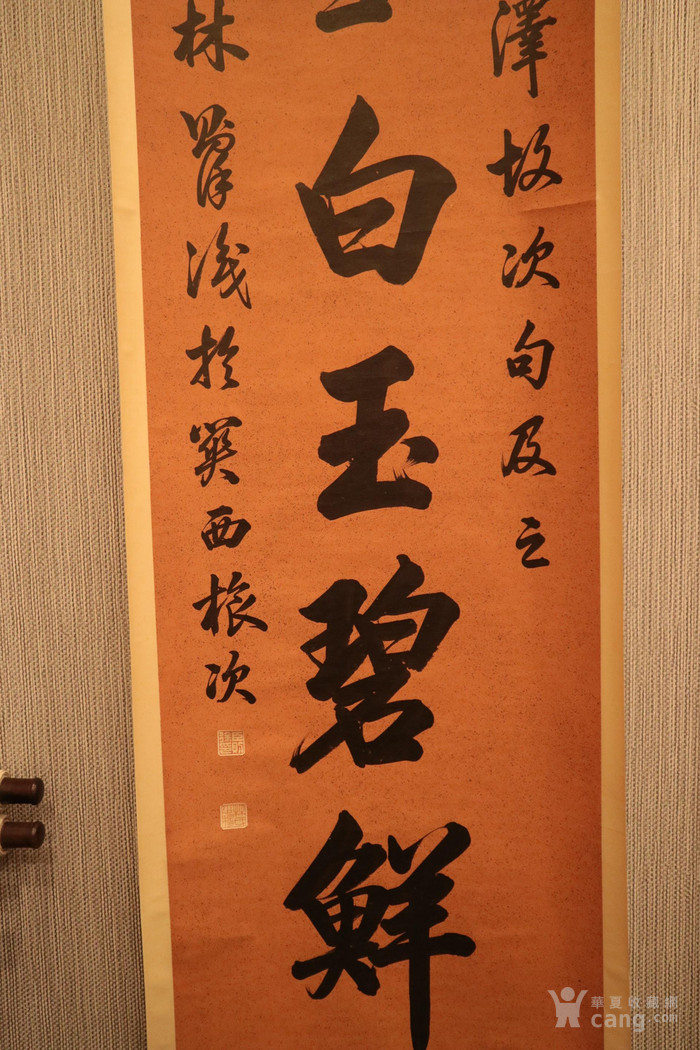 澤故次句及之
白玉碧鮮
林
於
西旅次
華夏收藏網
cang.com